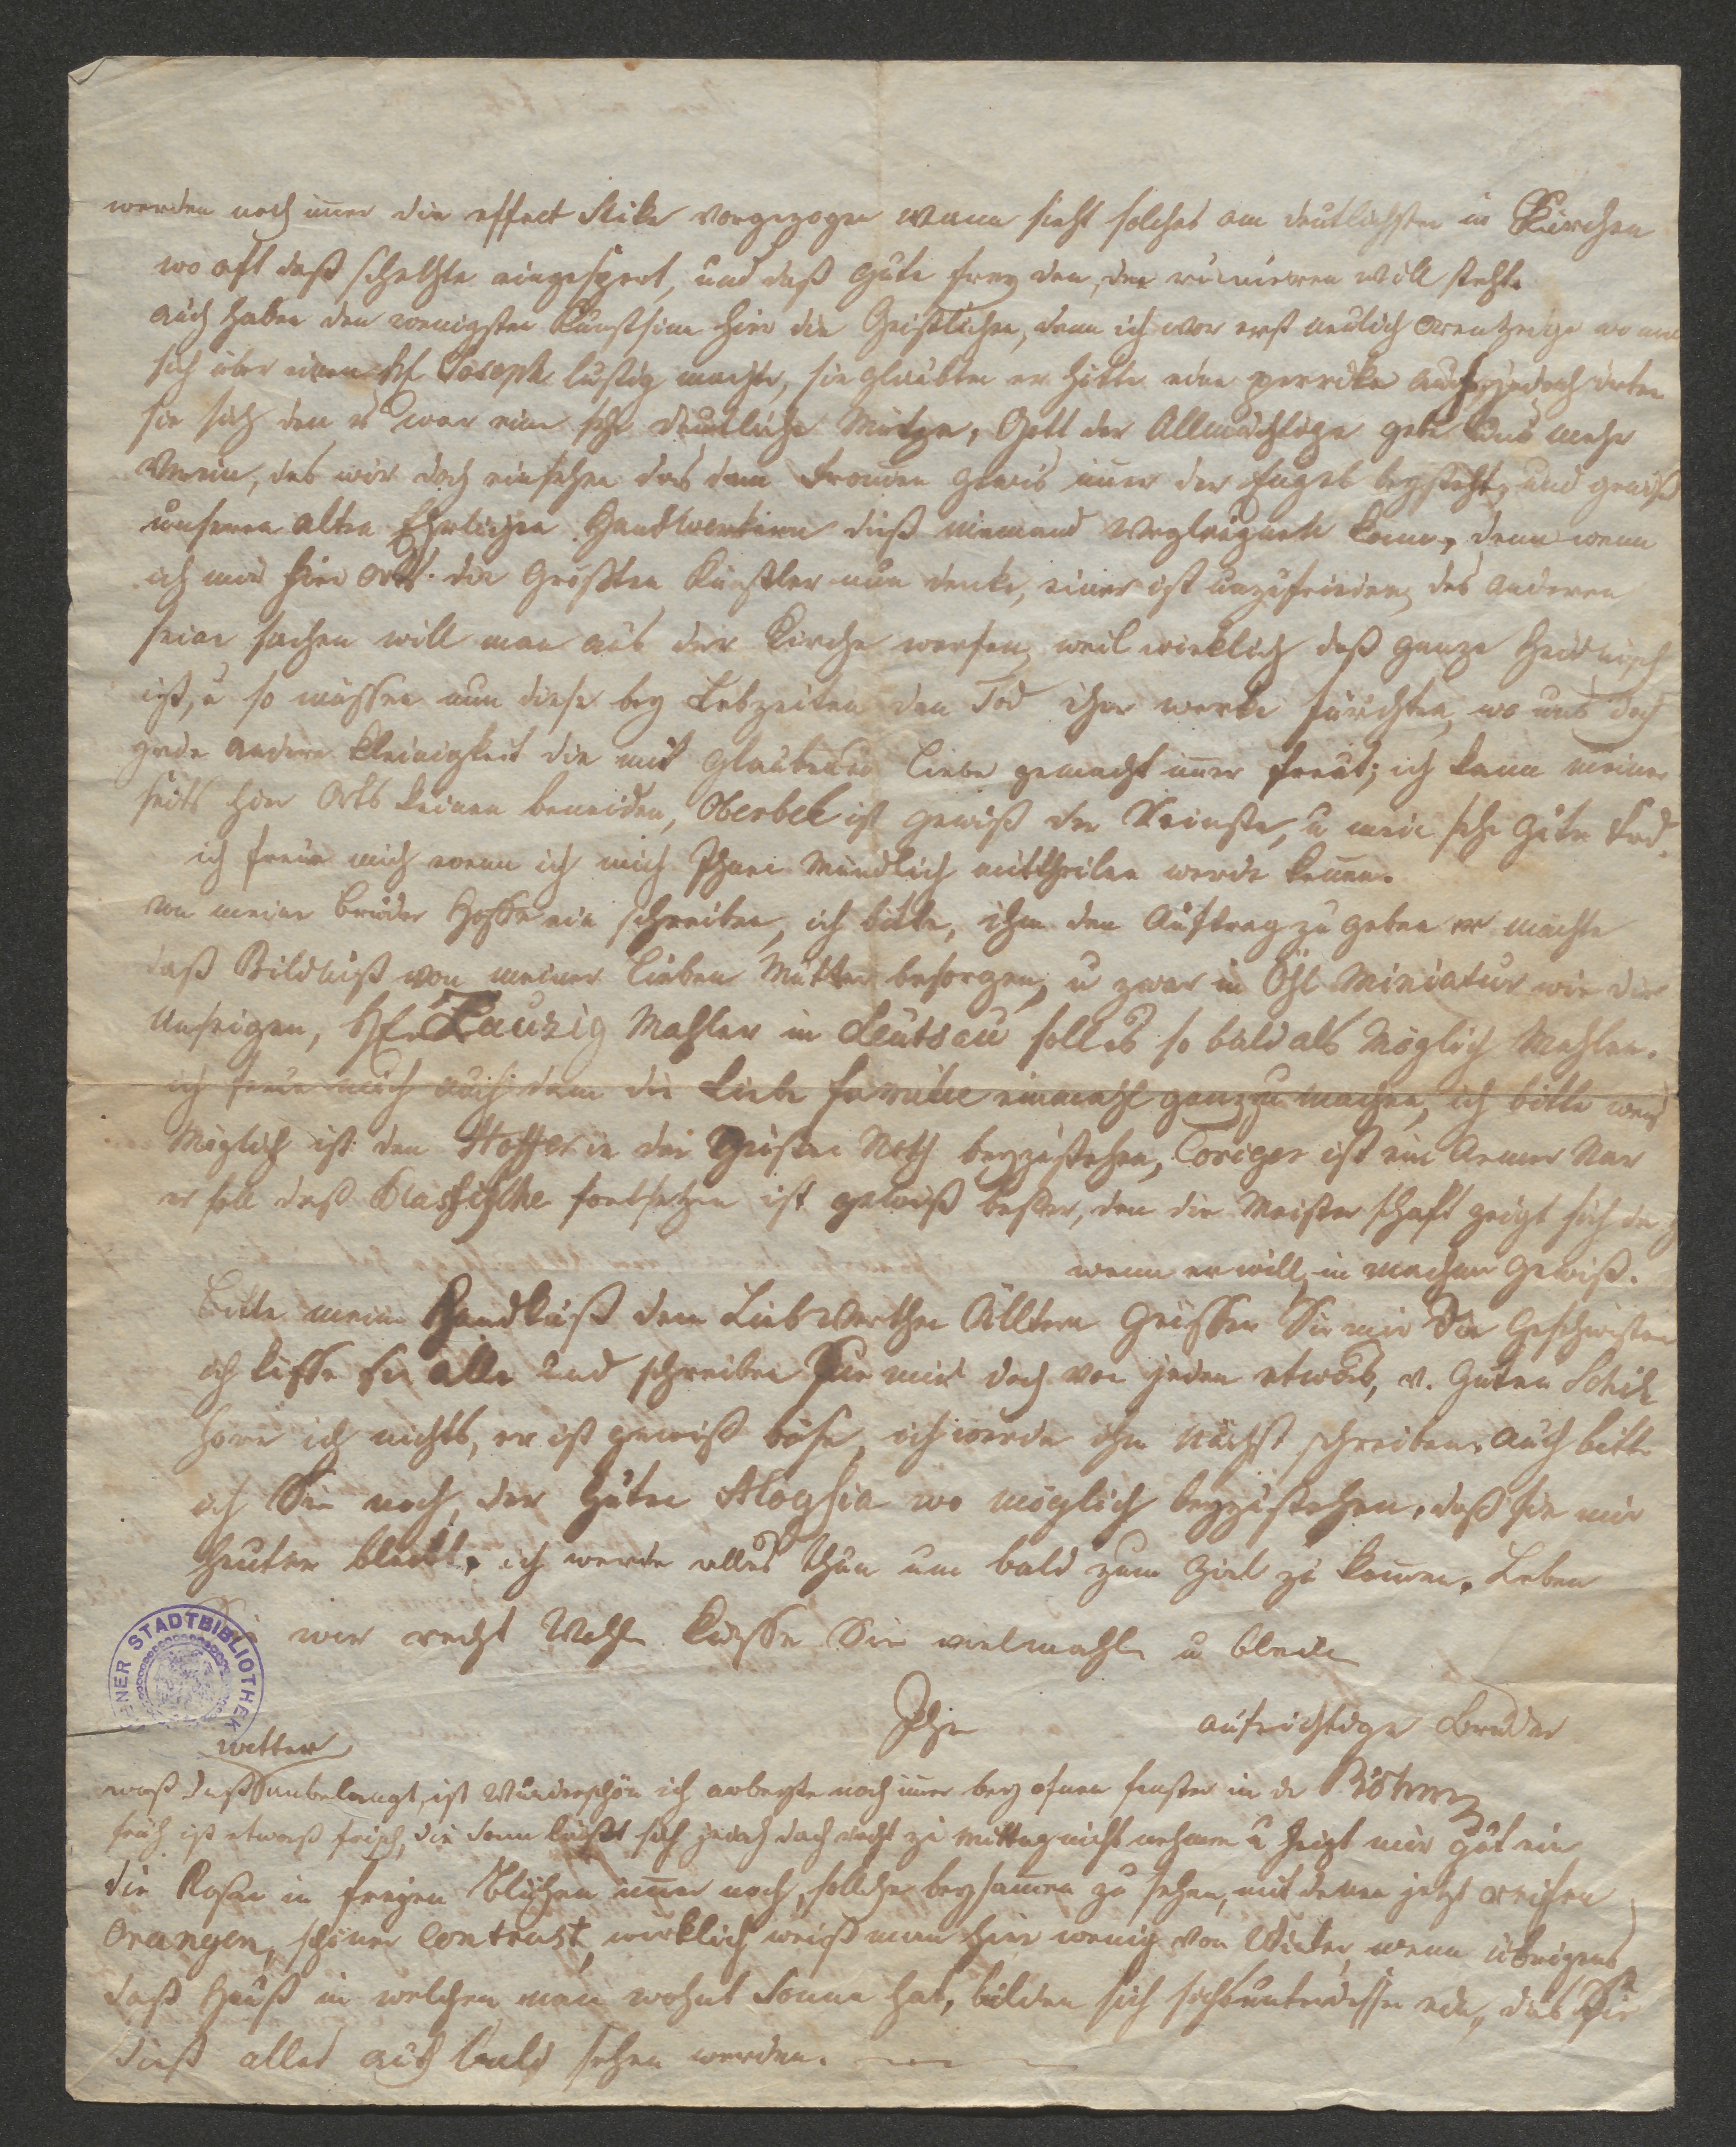 werden noch imer die effect Stüke vorgezogen wann sieht solches am deutlichsten in Kirchen
wo oft daß schelchte eingespert, und daß gute frey den, der ruinieren will steht.
auch haben den wenigsten Kunstsinn hier die Geistlichen, denn ich war erst neulich wo man
sich über einen hl Joseph lustig machte, sie glaubten er hätte eine perrüke auf, jedoch irten
sie sich den es war eine sehr deutliche Mütze, Gott der Allmächtige gebe uns mehr
das wir doch einsehen das dem fromen gewis imer der Engel beysteht, und gewiß
unseren alten Ehrlichen Handtwerkern dieß niemand kann, denn wenn
ich mir hier Orts die Größten Künstler nun denke, einer ist unzufrieden, des anderen
seine sachen will man aus der Kirche werfen, weil wirklich daß ganze Heidnisch
ist, u so müssen nun diese bey Lebzeiten den Tod ihrer werke fürchten, wo uns doch
jede andere Kleinigkeit die mit Glauben u Liebe gemacht imer freut; ich kann meiner
seits hier Orts keinen beneiden, Oberbek ist gewiß der Reinste, u mein sehr guter
ich freue mich wenn ich mich Ihnen Mündlich mittheilen werde könen.
von meine Bruder Hoffe ein schreiben, ich bitte, ihm den Auftrag zu geben er möchte
daß Bildniß von meiner lieben Mutter besorgen, u zwar in Öhl Miniatur wie die
Unseigen, H. Zauzig Mahler in Leutsau soll es so bald als Möglich Mahlen.
ich freue mich auch dann die Liebe familie einmahl ganz zu machen, ich bitte wens
Möglich ist den Hoffer in der Grösten Noth beyzustehen, ist ein Armer Nar
er soll daß Klassische fortsetzen ist gewiß besser, den die Meisterschaft zeigt sich
wenn er will, in machen gewiß.
Bitte mein Handkuß den Liebwerthen Älltern Grüssen Sie mir die Geschwister
ich küsse sie alle und schreiben Sie mir doch von jeden etwas, v. Guten Schik
höre ich nichts, er ist gewiß böse, ich werde ihm nächst schreiben. auch bitte
ich Sie noch, der Guten Aloysia wo möglich beyzustehen, daß sie mir
bleibt, ich werde alles thun um bald zum Ziel zu komen. Leben
Sie mir recht Wohl Küsse Sie vielmahls u bleibe
Ihr aufrichtiger Bruder
WIENER STADTBIBLIOTHEK
witter
was daß anbelangt, ist Wunderschön ich arbeyte noch imer bey ofnen fenster in der
früh ist etwaß frisch, die Sonn läßt sich jedoch doch recht zu Mittag nicht nehmen u heizt mir gut ein
die Rosen in freyen Blühen imer noch, solche beysamen zu sehen, mit denen jetzt reifen
Orangen, schöner Contrast, wirklich weiß man hier wenig von Winter, wenn übrigens
daß Hauß in welchen man wohnt Sonne hat, bilden sich sie unterdessen ein, das Sie
dieß alles auch bald sehen werden.